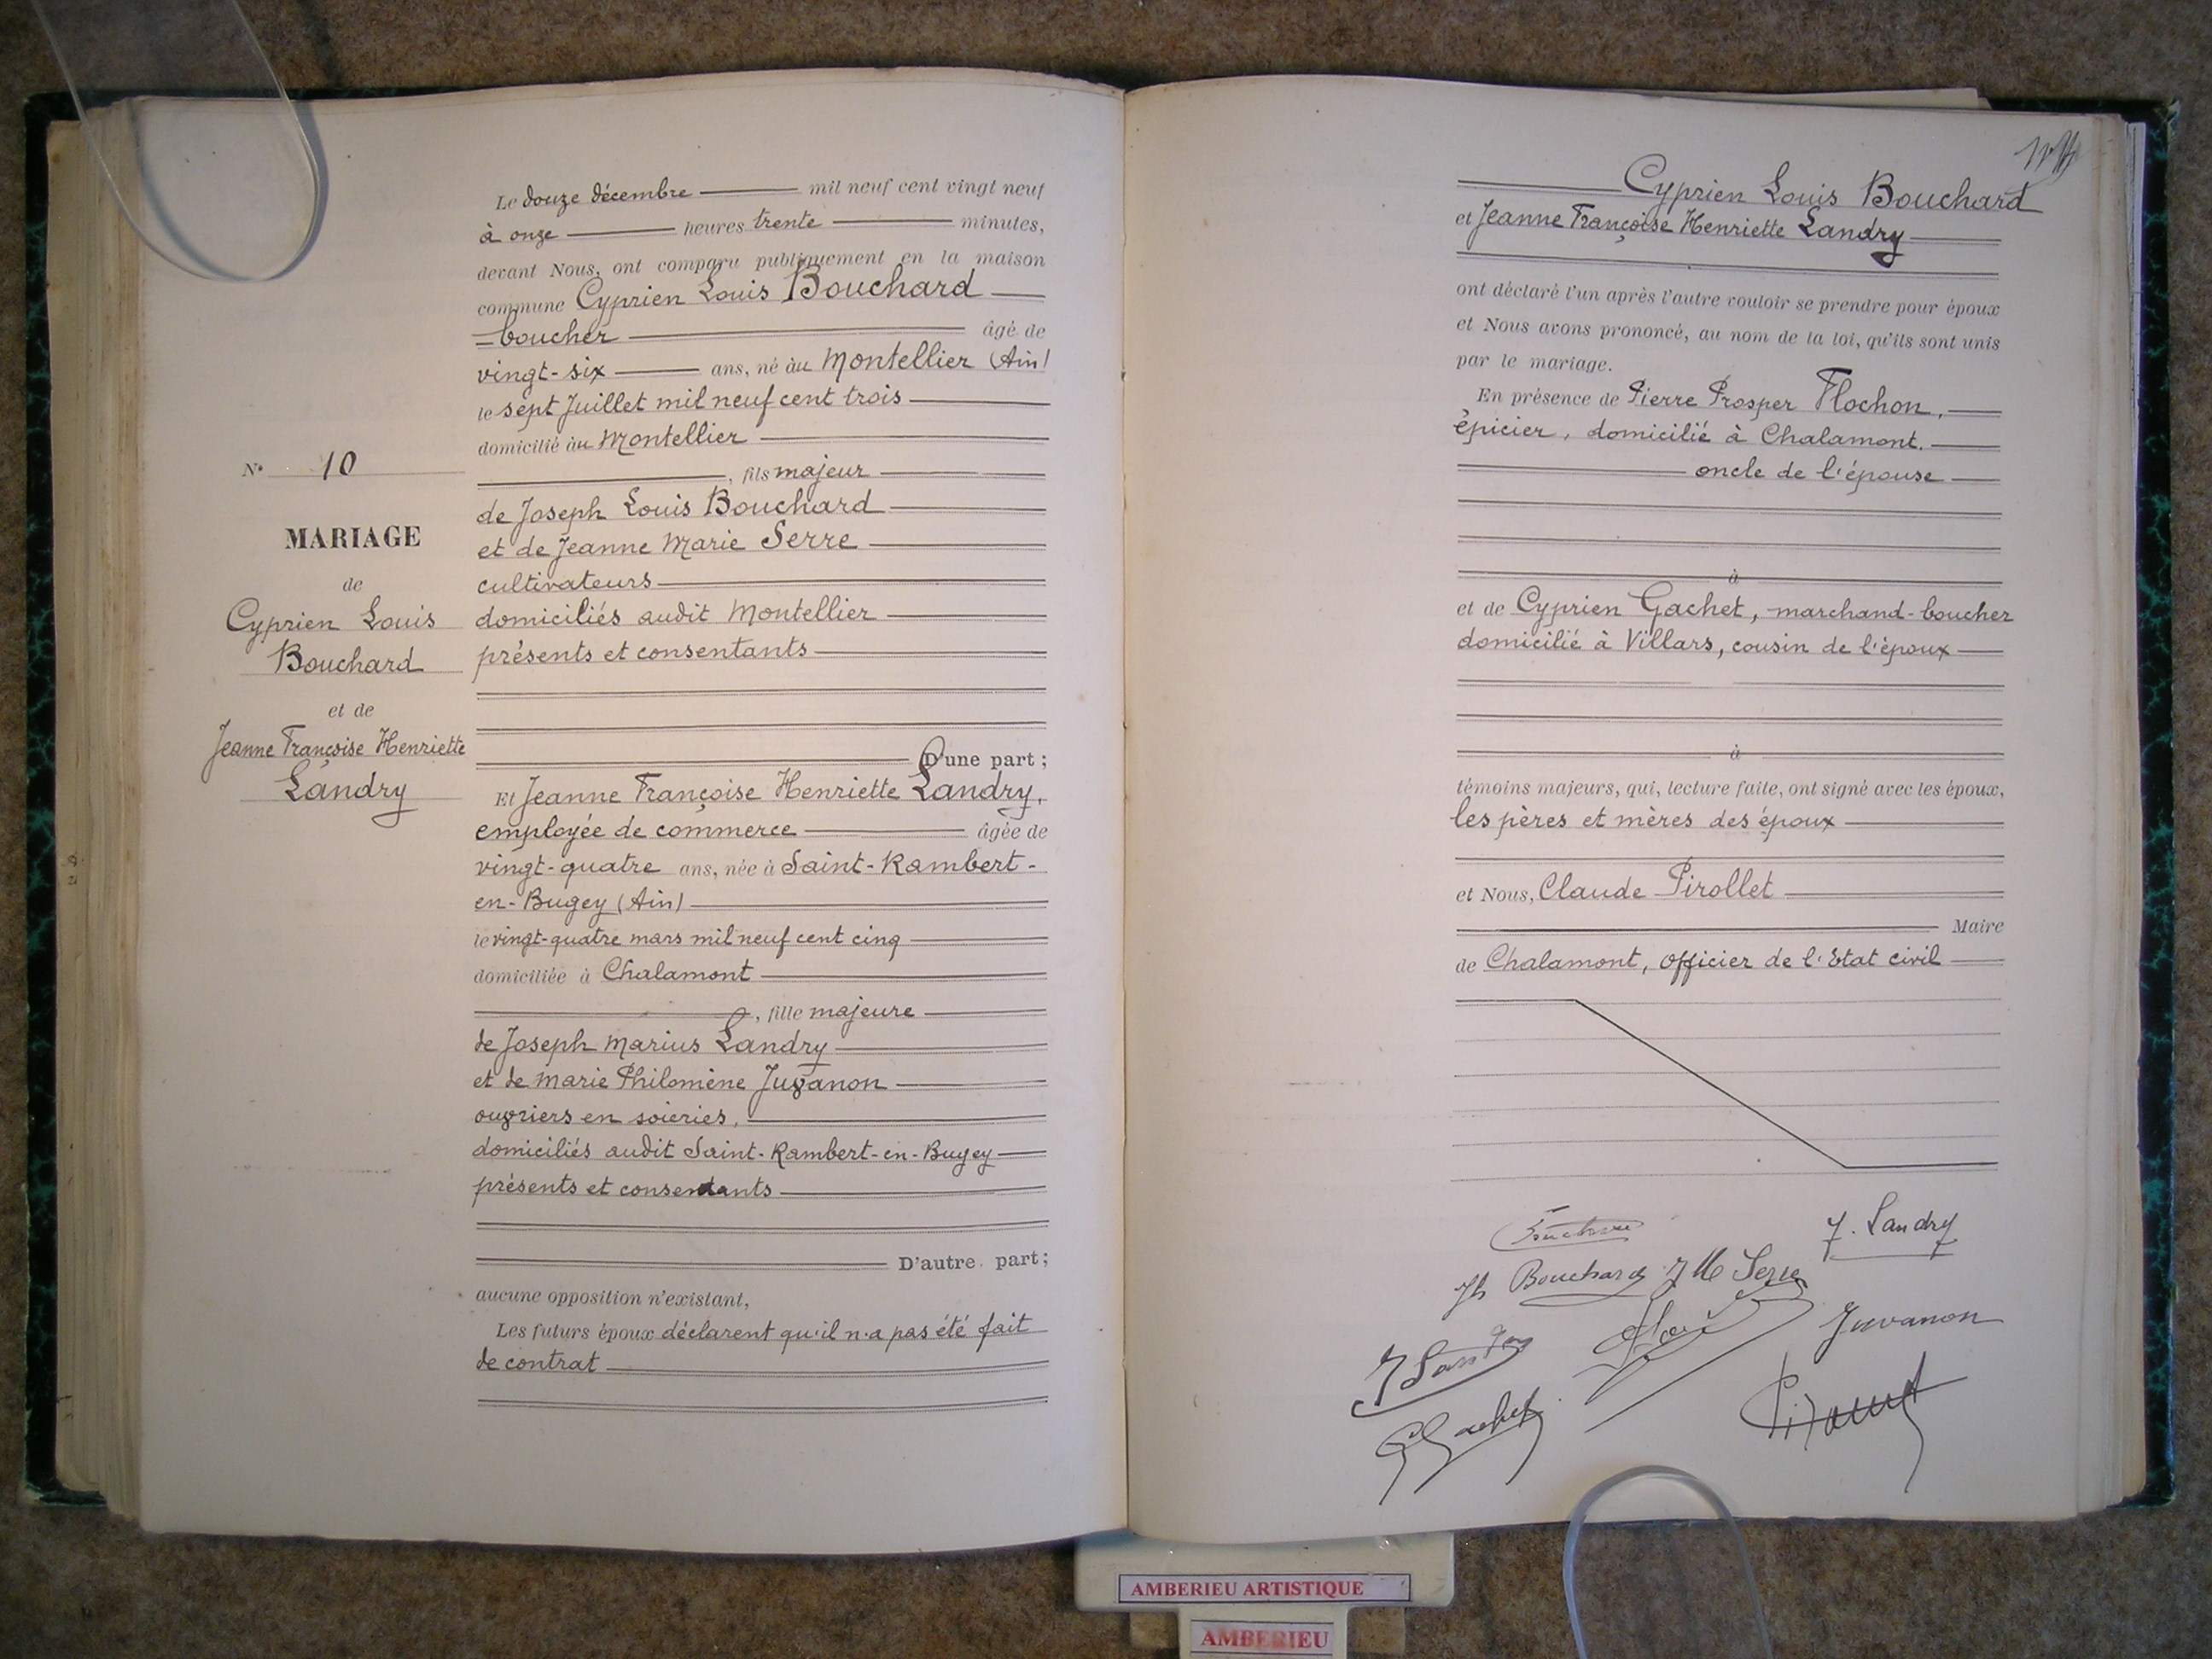 Le douze décembre mil neuf cent vingt neuf
à onze heures trente minutes,
devant Nous, ont comparu publiquement en la maison
commune Cyprien Louis Bouchard
boucher âgé de
vingt-six ans, né àu Montellier (Ain)
le sept Juillet mil neuf cent trois
domicilié àu Montellier
, fils majeur
de Joseph Louis Bouchard
et de Jeanne Marie Serre
cultivateurs
domiciliés audit Montellier
présents et consentants
D'une part;
Et Jeanne Françoise Henriette Landry,
employée de commerce âgée de
vingt-quatre ans, née à Saint-Rambert-
en-Bugey (Ain)
le vingt-quatre mars mil neuf cent cinq
domiciliée à Chalamont
, fille majeure
de Joseph Marius Landry
et de Marie Philomène Juvanon
ouvriers en soieries,
domiciliés audit Saint-Rambert-en-Bugey
présents et consentants
D'autre part;
aucune opposition n'existant,
Les futurs époux déclarent qu'il n'a pas été fait
de contrat
N° 10
MARIAGE
de
Cyprien Louis
Bouchard
et de
Jeanne Françoise Henriette
Landry
Cyprien Louis Bouchard
et Jeanne Françoise Henriette Landry
ont déclaré l'un après l'autre vouloir se prendre pour époux
et Nous avons prononcé, au nom de la loi, qu'ils sont unis
par le mariage.
En présence de Pierre Prosper Flochon,
épicier, domicilié à Chalamont.
oncle de l'épouse
à
et de Cyprien Gachet, marchand-boucher
domicilié à Villars, cousin de l'époux
à
témoins majeurs, qui, lecture faite, ont signé avec les époux,
les pères et mères des époux
et Nous, Claude Pirollet
Maire
de Chalamont, officier de l'Etat civil
J. Landry
Jh Bouchard J M Serre
Juvanon
J Landry
C Gachet
AMBERIEU ARTISTIQUE
AMBERIEU